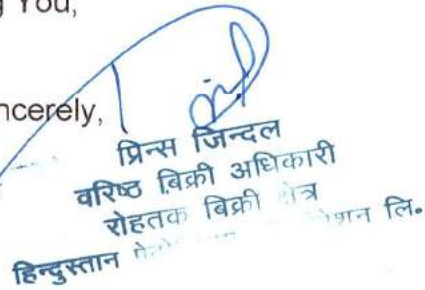 g You,
ncerely,
प्रिन्स जिन्दल
वरिष्ठ बिक्री अधिकारी
रोहतक बिक्री
हिन्दुस्तान लि.